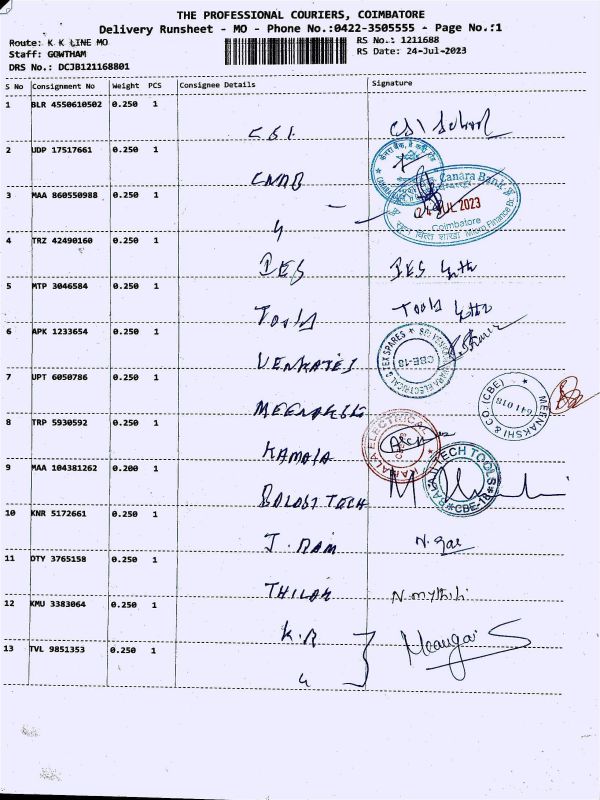 THE PROFESSIONAL COURIERS, COIMBATORE
Delivery Runsheet - MO - Phone No.:0422-3505555 - Page No.:1
Route: K K LINE MO
Staff: GOWTHAM
DRS No.: DCJB121168801
RS No.: 1211688
RS Date: 24-Jul-2023
S No Consignment No Weight PCS Consignee Details Signature
1 BLR 4550610502 0.250 1
CSI CSI School
2 UDP 17517661 0.250 1
CNRB
Canara Bank
24 JUL 2023
Coimbatore
Micro Finance Br.
3 MAA 860550988 0.250 1
"
4 TRZ 42490160 0.250 1
IES IES
5 MTP 3046584 0.250 1
Tools Tools
6 APK 1233654 0.250 1
VENKATES
ELECTRICAL & TEX SPARES
CBE-18
7 UPT 6050786 0.250 1
MEENAKSHI
MEENAKSHI & CO. (CBE)
641 018
8 TRP 5930592 0.250 1
KAMALA
KAMALA ELECTRICAL
9 MAA 104381262 0.200 1
BALAJI TECH
BALAJI TECH TOOLS
CBE-18
10 KNR 5172661 0.250 1
J. RAM
11 OTY 3765158 0.250 1
THILAK N. mythili
12 KMU 3383064 0.250 1
K.R
13 TVL 9851353 0.250 1
"